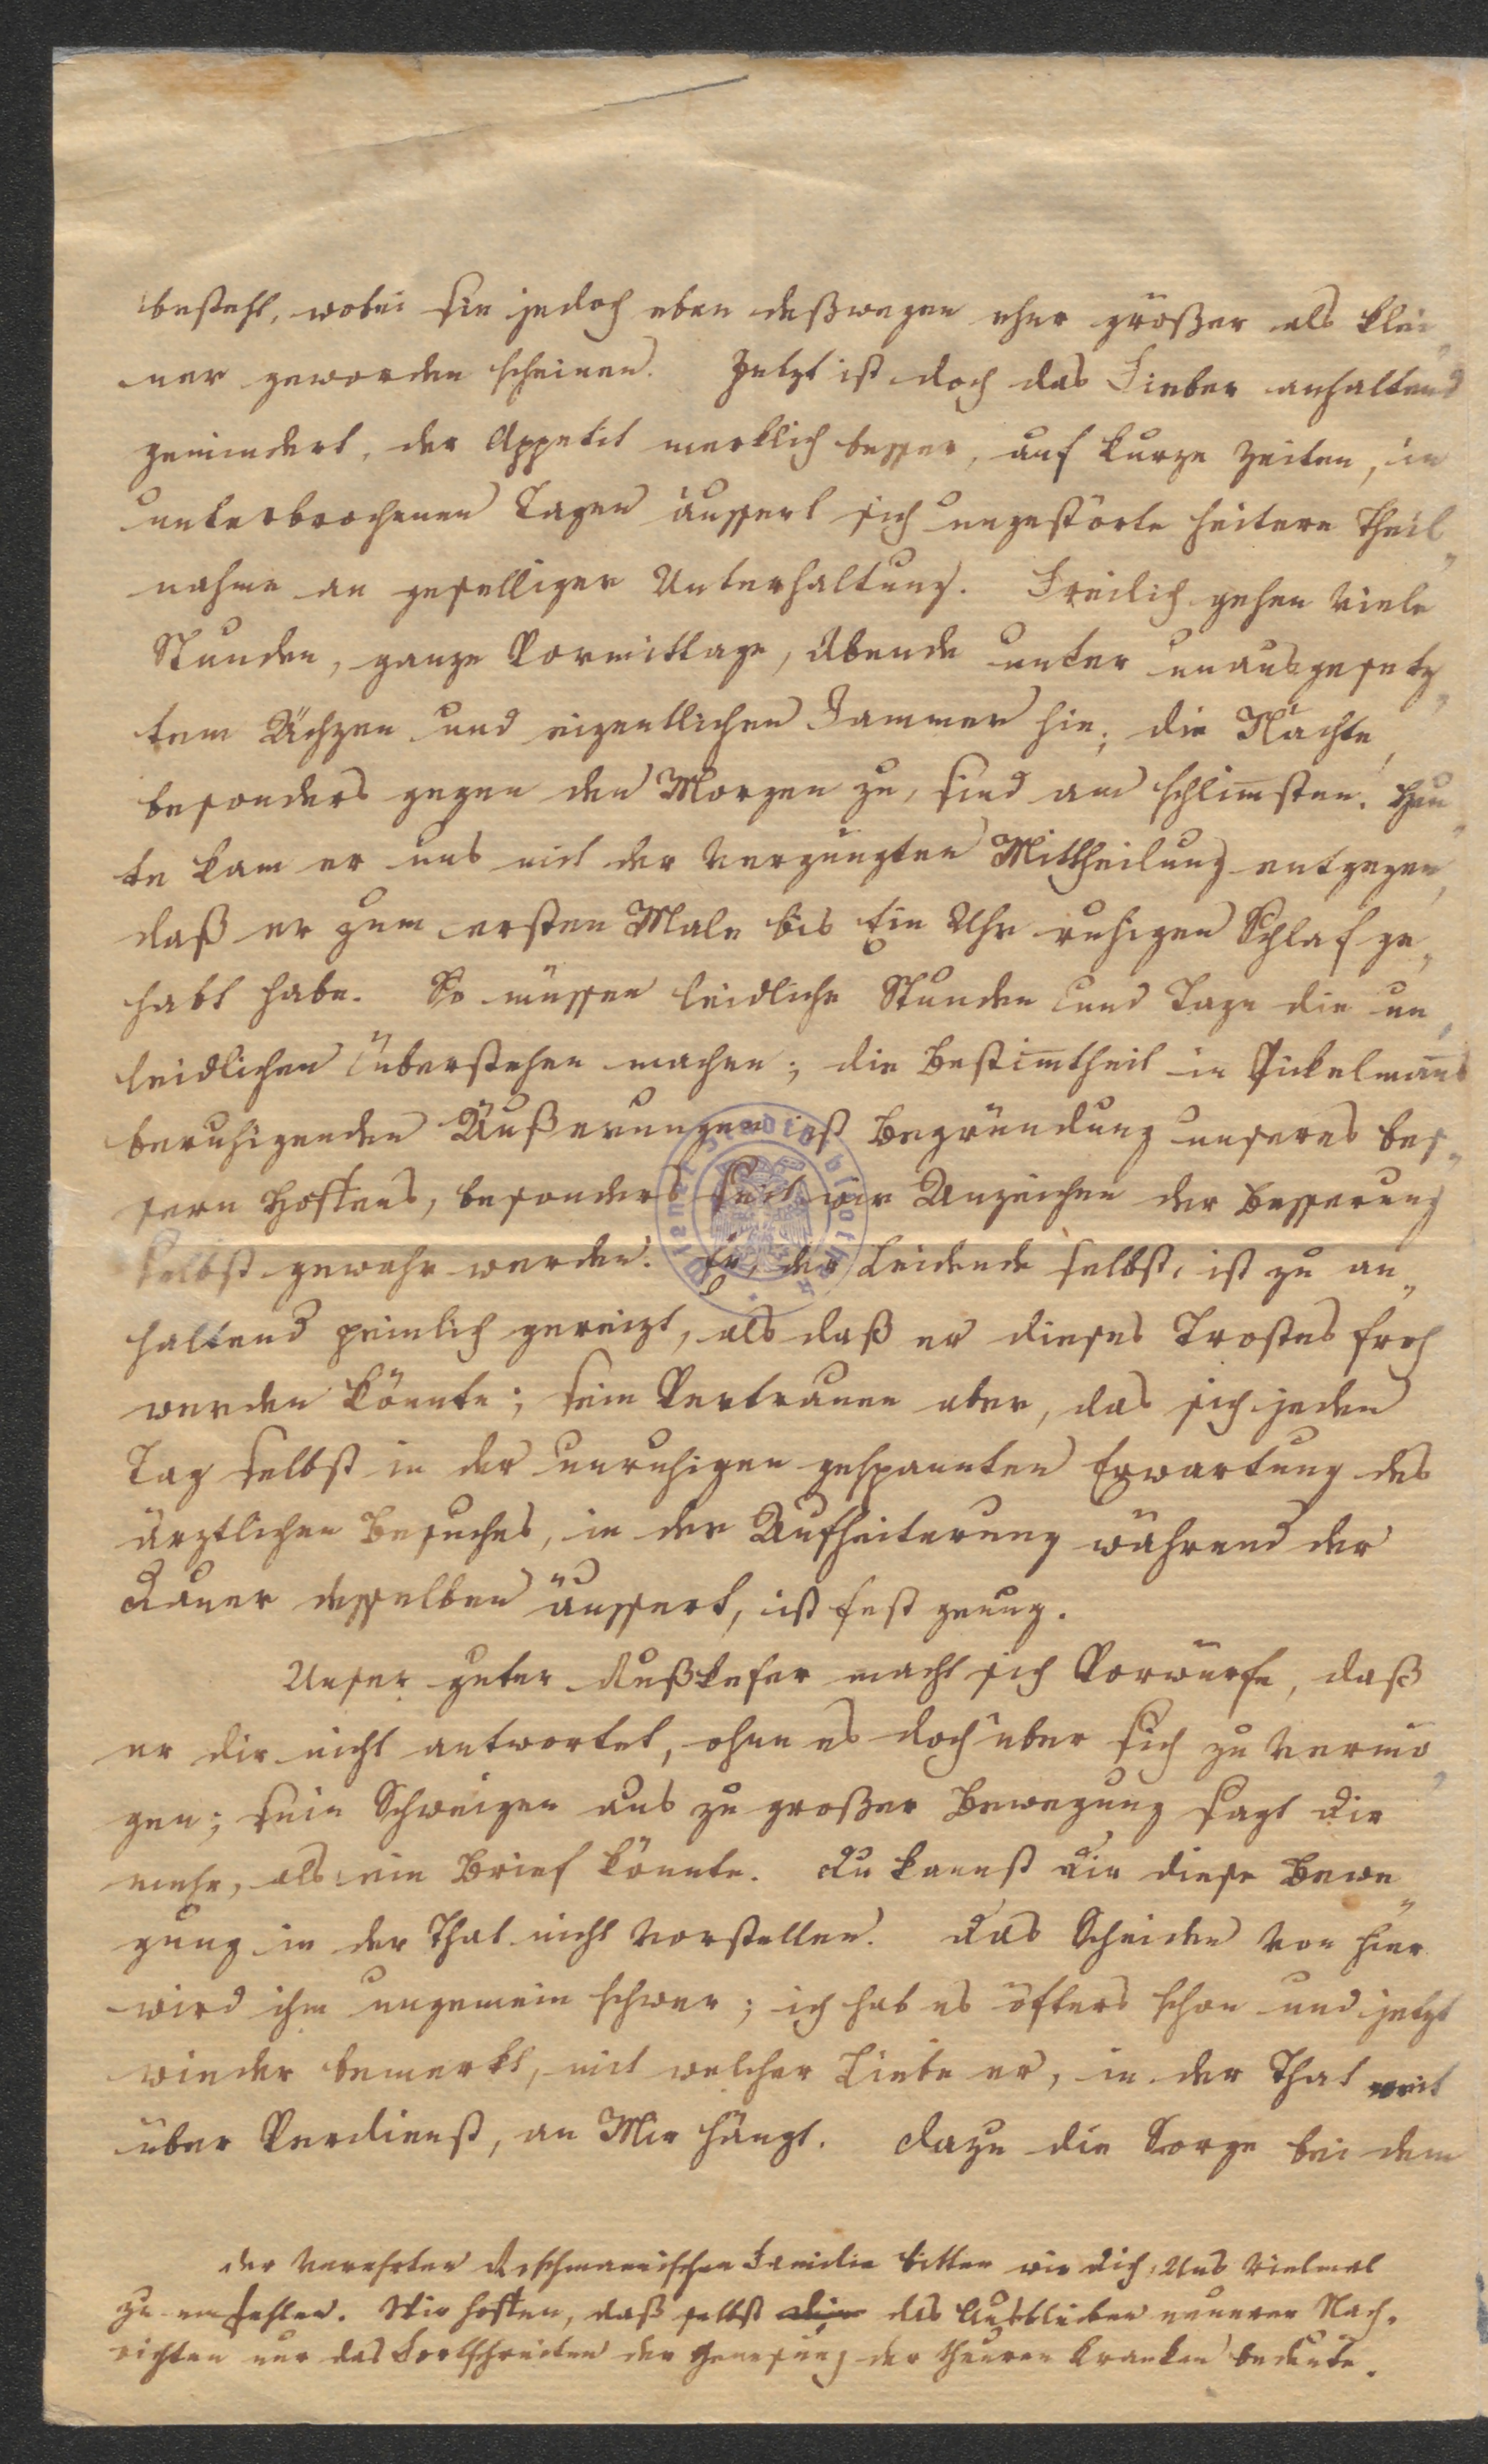 besteht, wobei sie jedoch eben deßwegen eher größer als klei„
ner geworden scheinen. Jetzt ist doch das Fieber anhaltend
gemindert, der Appetit merklich besser, auf kurze Zeiten, in
unterbrochenen Tagen äussert sich ungestörte heitere Theil„
nahme an geselliger Unterhaltung. Freilich gehen viele
Stunden, ganze Vormittage, Abende unter unausgesetz„
tem Ächzen und eigentlichen Jammer hin; die Nächte,
besonders gegen den Morgen zu, sind am schlim̄sten. Heu„
te kam er uns mit der vergnügten Mittheilung entgegen,
daß er zum ersten Male bis Ein Uhr ruhigen Schlaf ge„
habt habe. So müssen leidliche Stunden und Tage die un„
leidlichen überstehen machen; die Bestim̄theit in
beruhigenden Äußerungen ist Begründung unseres bes„
sern Hoffens, besonders seit wir Anzeichen der Besserung
selbst gewahr werden. Er, der Leidende selbst, ist zu an„
haltend peinlich gereizt, als daß er dieses Trostes froh
werden könnte; sein Vertrauen aber, das sich jeden
Tag selbst in der unruhigen gespannten Erwartung des
ärztlichen Besuches, in der Aufheiterung während der
Dauer desselben äussert, ist fest genug.
Unser guter Rußkefer macht sich Vorwürfe, daß
er dir nicht antwortet, ohne es doch über sich zu vermö„
gen; sein Schweigen aus zu großer Bewegung sagt dir
mehr, als ein Brief könnte. Du kannst dir diese Bewe„
gung in der That nicht vorstellen. Das Scheiden von hier
wird ihm ungemein schwer; ich hab es öfters schon und jetzt
wieder bemerkt, mit welcher Liebe er, in der That weit
über Verdienst, an Mir hängt. Dazu die Sorge bei dem
Der verehrten Familie bitten wir dich, Uns vielmal
zu empfehlen. Wir hoffen, daß selbst das Ausbleiben neuerer Nach„
richten nur das Fortschreiten der Genesung der theuren Kranken bedeute.